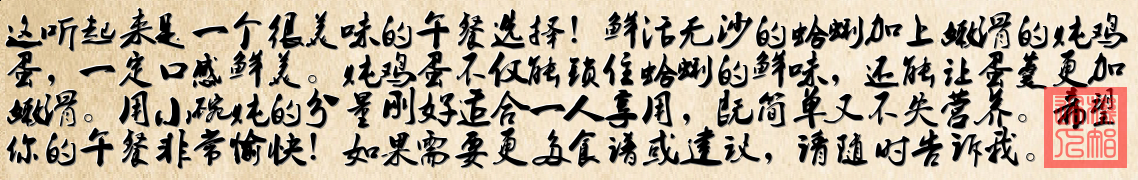 这听起来是一个很美味的午餐选择！鲜活无沙的蛤蜊加上嫩滑的炖鸡
蛋，一定口感鲜美。炖鸡蛋不仅能锁住蛤蜊的鲜味，还能让蛋羹更加
嫩滑。用小碗炖的分量刚好适合一人享用，既简单又不失营养。希望
你的午餐非常愉快！如果需要更多食谱或建议，请随时告诉我。